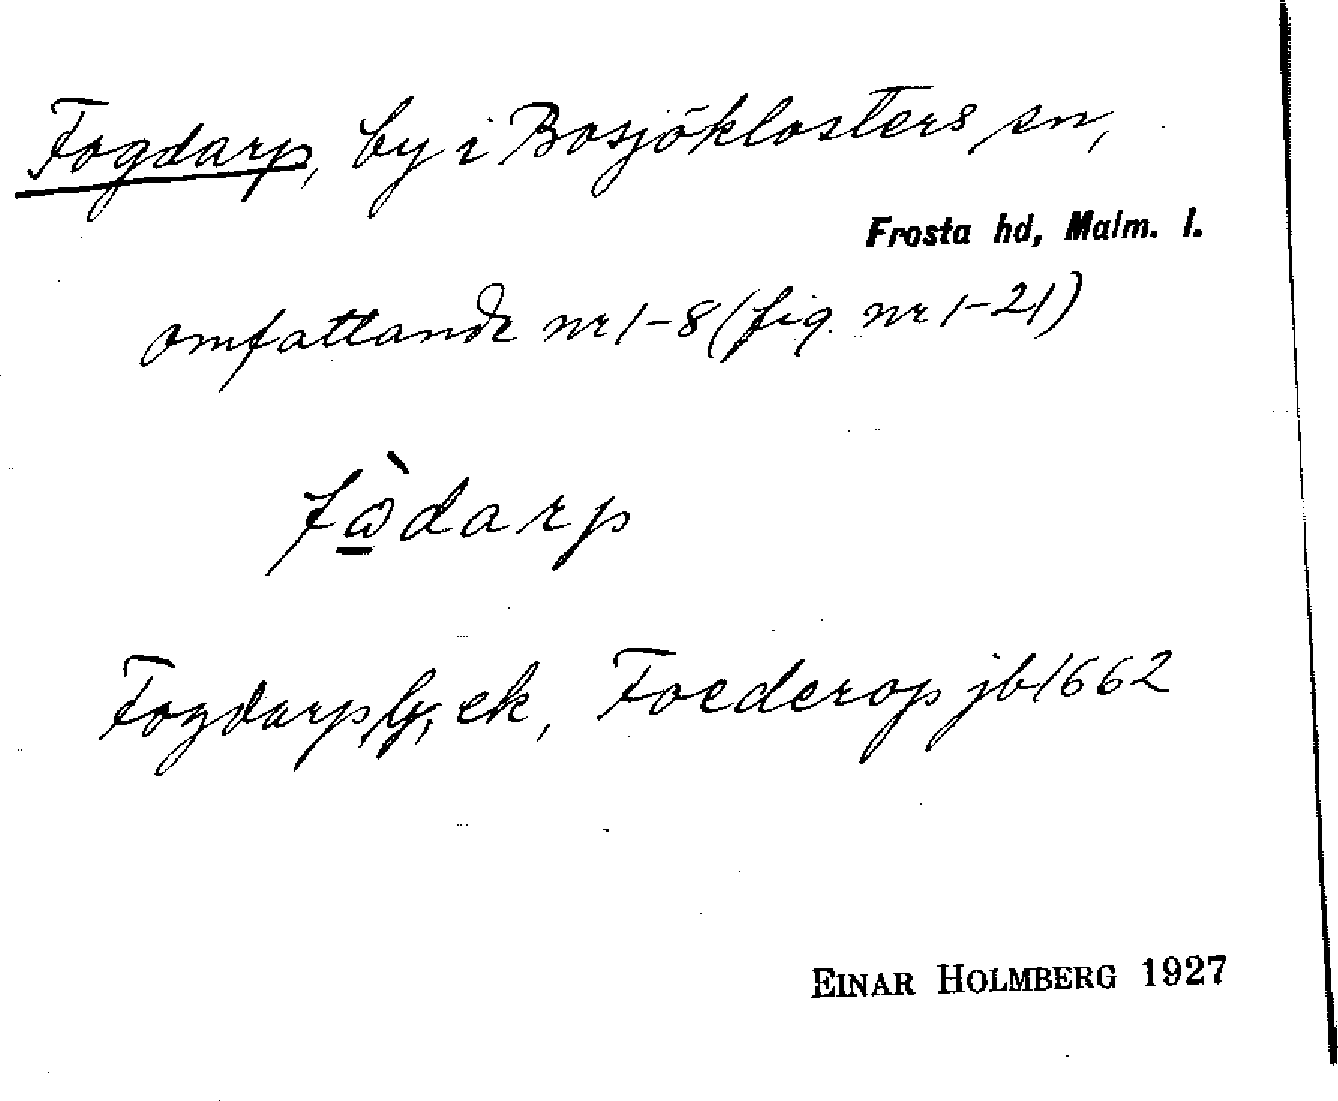 Fogdarp, by i Bosjöklosters sn,
Frosta hd, Malm. l.
omfattande nr 1-8 (fig. nr 1-21)
fὼdarp
Fogdarp, ek, Foederop jb 1662
EINAR HOLMBERG 1927